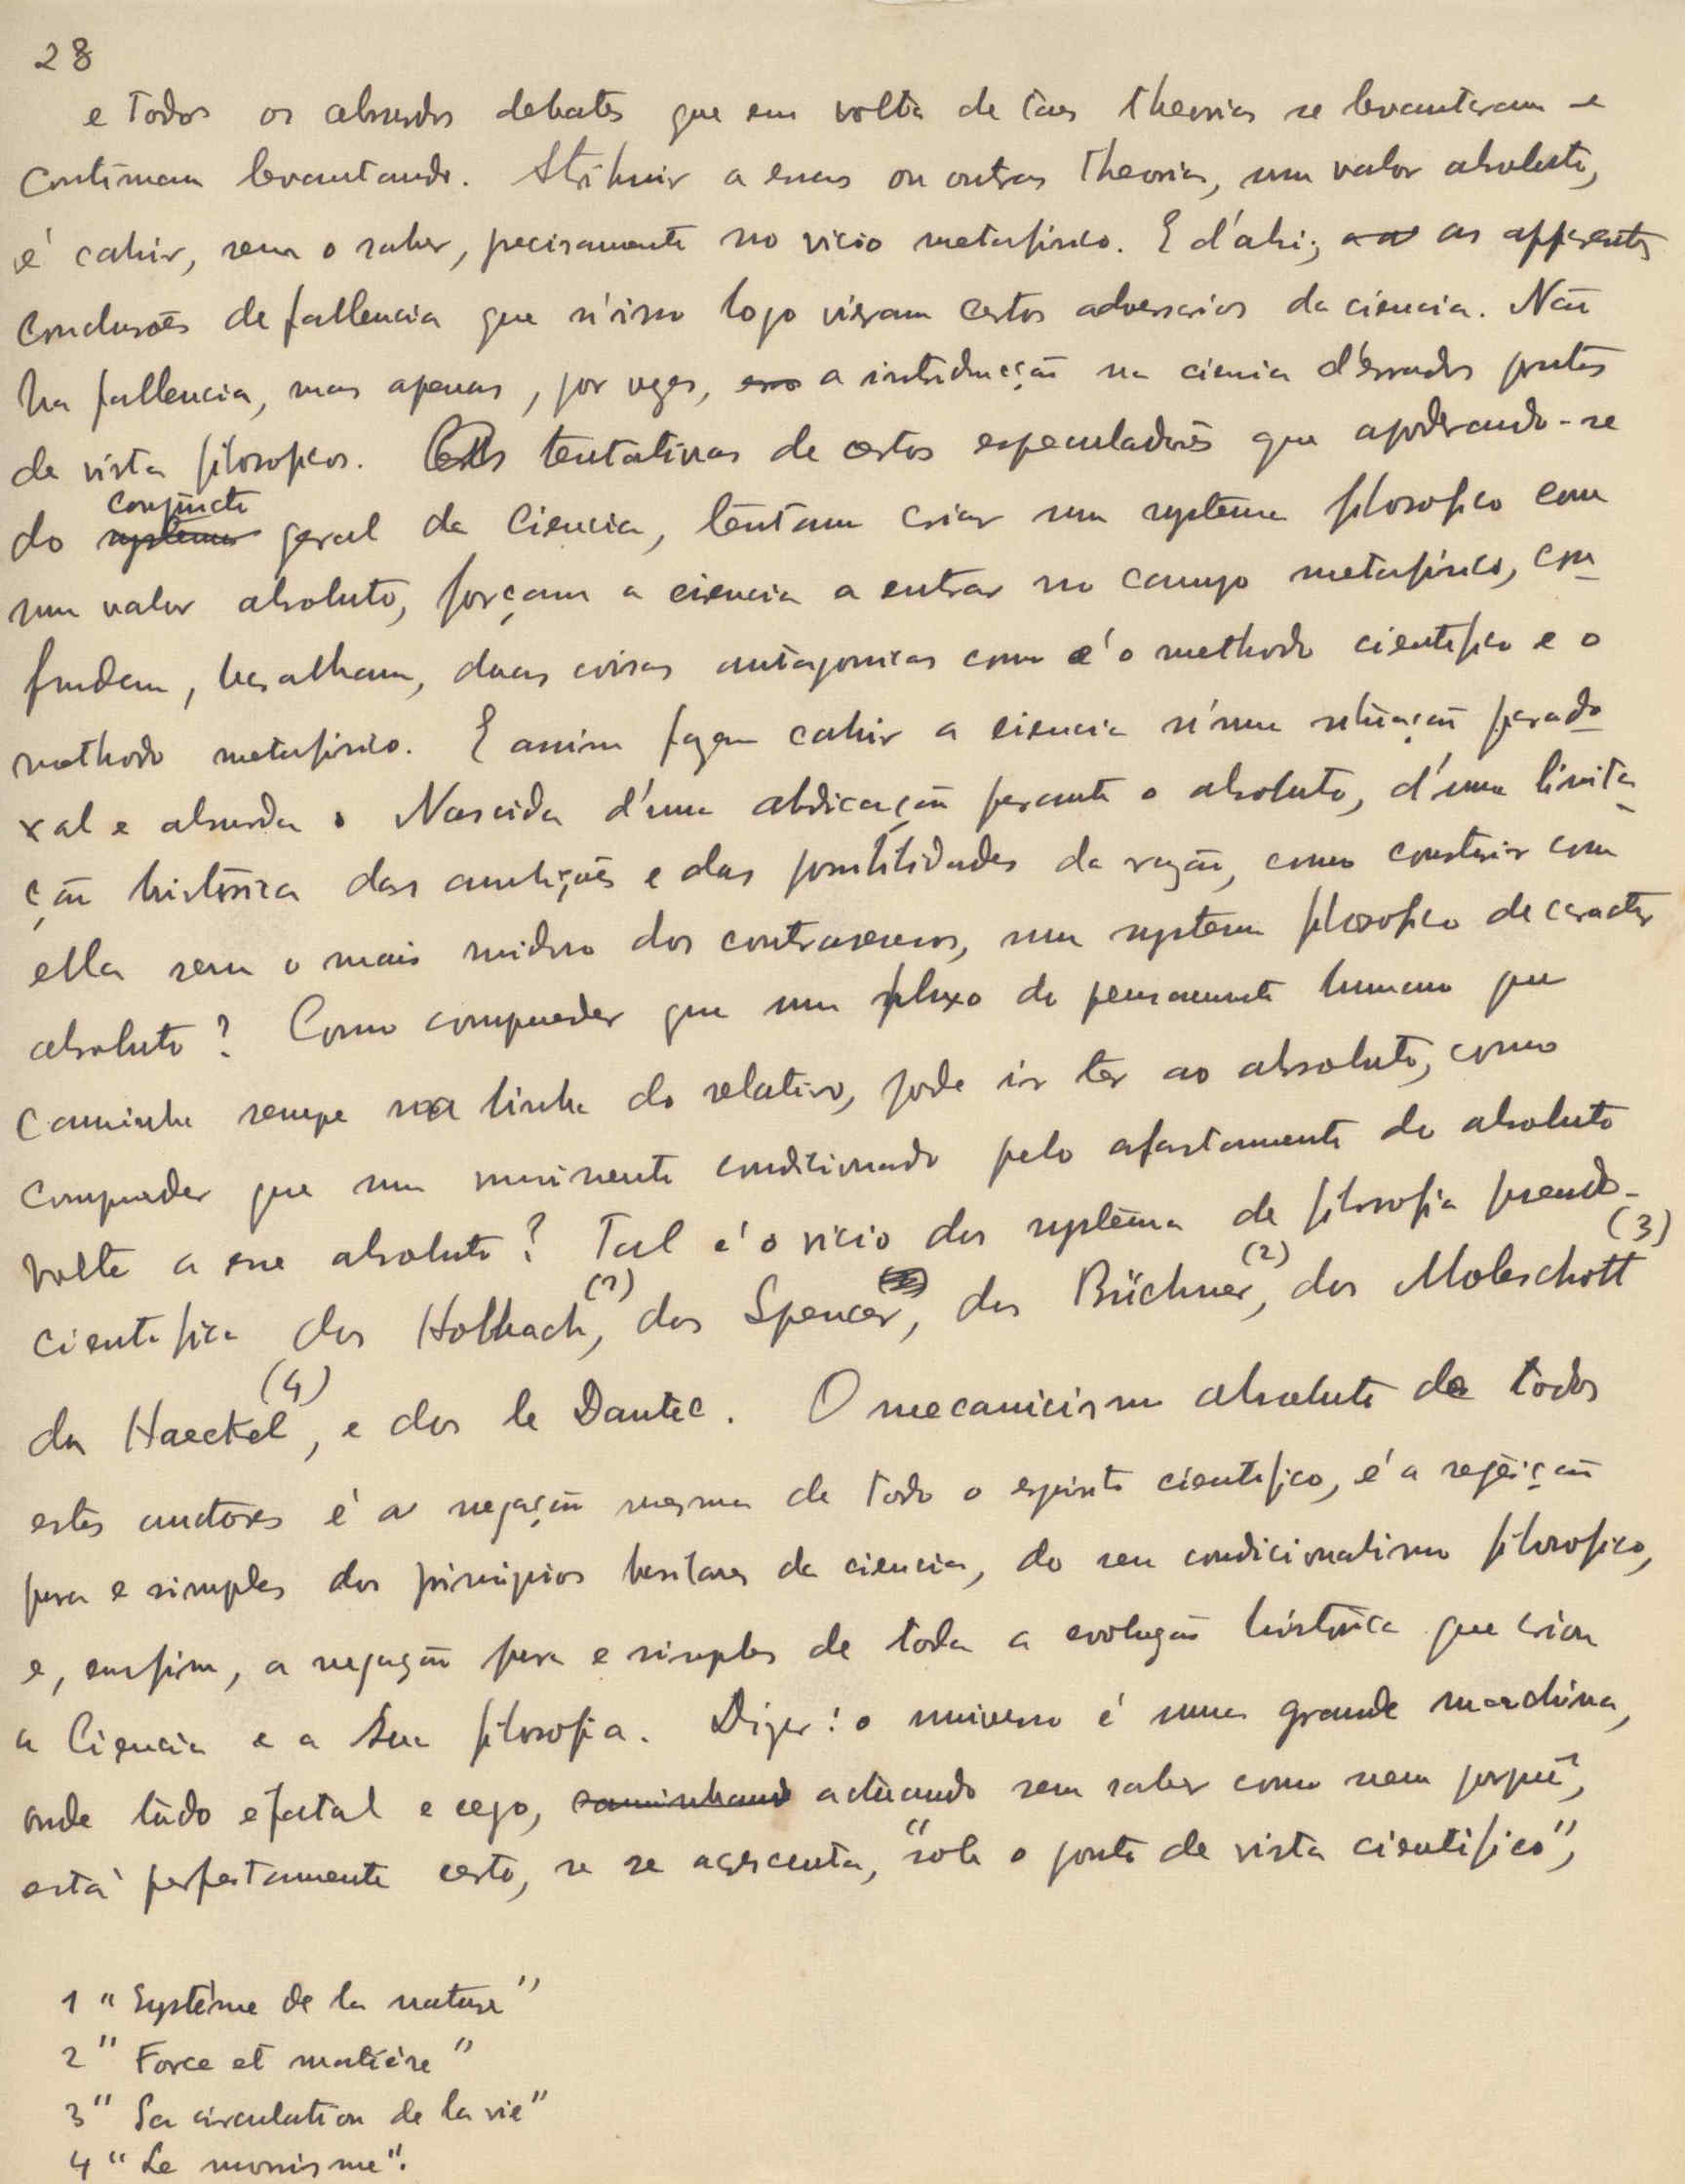 28
e todos os absurdos debates que em volta de taes theorias se levantaram e
continuam levantando. Atribuir a essas ou outras theorias, um valor absoluto,
é cahir, sem o saber, precisamente no vicio metafisico. E d'ahi, as apparentes
conclusões de fallencia que n'isso logo viram certos adversarios da ciencia. Não
ha fallencia, mas apenas, por vezes, a introducção na ciencia d'errados pontos
de vista filosoficos. tentativas de certos especuladores que apoderando-se
conjuncto
do systema geral da Ciencia, tentam criar um systema filosofico com
um valor absoluto, forçam a ciencia a entrar no campo metafisico, con-
fundem, baralham, duas coisas antagonicas como é o methodo cientifico e o
methodo metafisico. E assim fazem cahir a ciencia n'uma situação parado-
xal e absurda. Nascida d'uma abdicação perante o absoluto, d'uma limita-
ção historica das ambições e das possibilidades da razão, como construir com
ella sem o mais ruidoso dos contrasensos, um systema filosofico de caracter
absoluto? Como comprender que um fluxo do pensamento humano que
caminha sempre na linha do relativo, pode ir ter ao absoluto, como
comprender que um movimento condicionado pelo afastamento do absoluto
volte a esse absoluto? Tal é o vicio dos systema de filosofia pseudo-
cientifica dos Holbach, (1) dos Spencer, dos Büchner, (2) dos Moleschott (3)
da Haeckel (4), e dos le Dantec. O mecanicismo absoluto de todos
estes auctores é a negação mesma de todo o espirito cientifico, é a rejeição
pura e simples dos principios basilares da ciencia, do seu condicionalismo filosofico,
e, emfim, a negação pura e simples de toda a evolução historica que criou
a Ciencia e a sua filosofia. Dizer: o universo é uma grande machina,
onde tudo e fatal e cego, caminhando actuando sem saber como nem porquê,
está perfeitamente certo, se se acrescenta, "sob o ponto de vista cientifico",
1 "Système de la nature"
2 "Force et matière"
3 "La circulation de la vie"
4 "Le monisme".